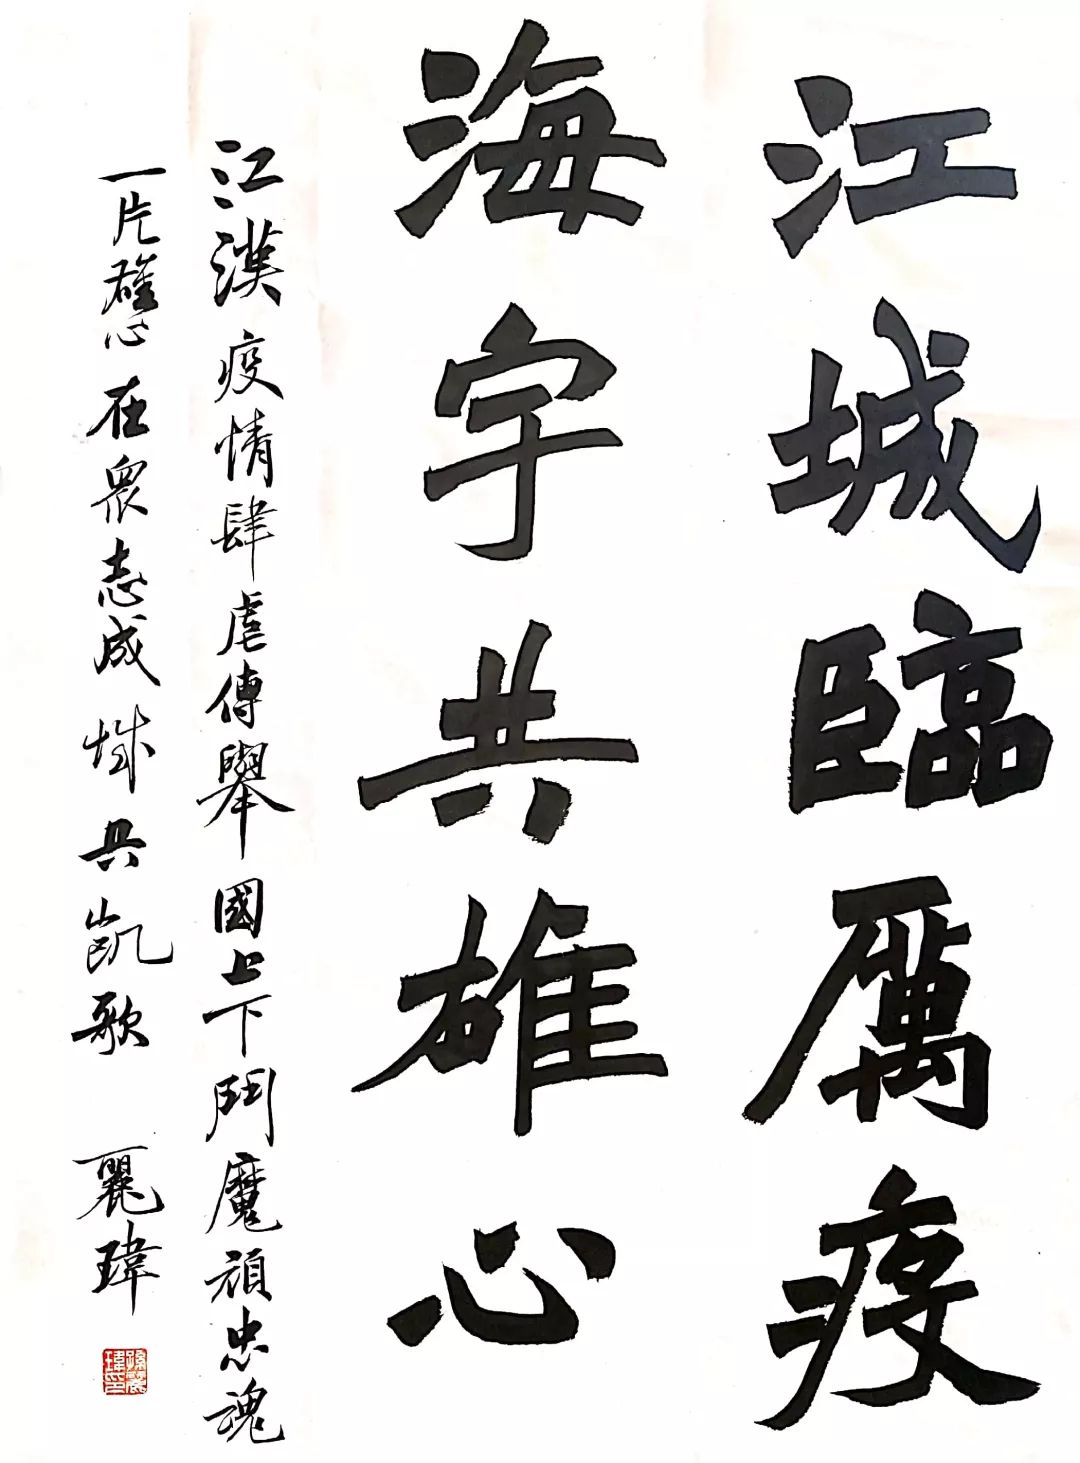 江城臨厲疫
海宇共雄心
江漢疫情肆虐傳舉國上下鬥魔頑忠魂
一片雄心在衆志成城共凱歌 麗瑋